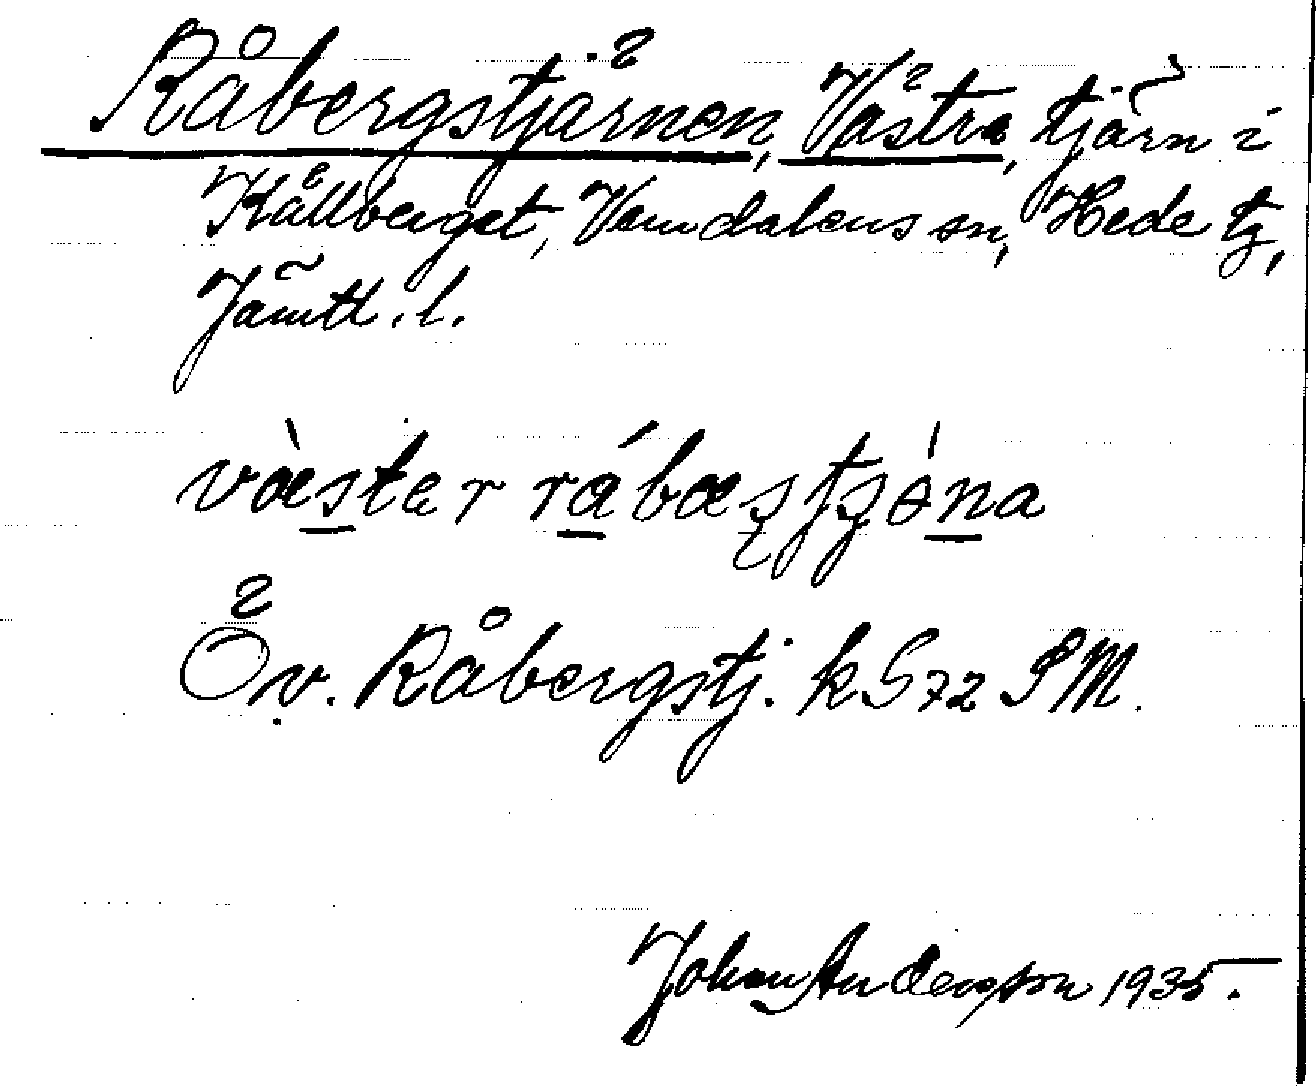 Råbergstjärnen, Västra, tjärn i
Kållberget, Vemdalens sn, Hede tg,
Jämtl. l.
væ̀ster rábæstjǿna
Öv. Råbergstj. k G 72 SM.
Johan Andersson 1935.